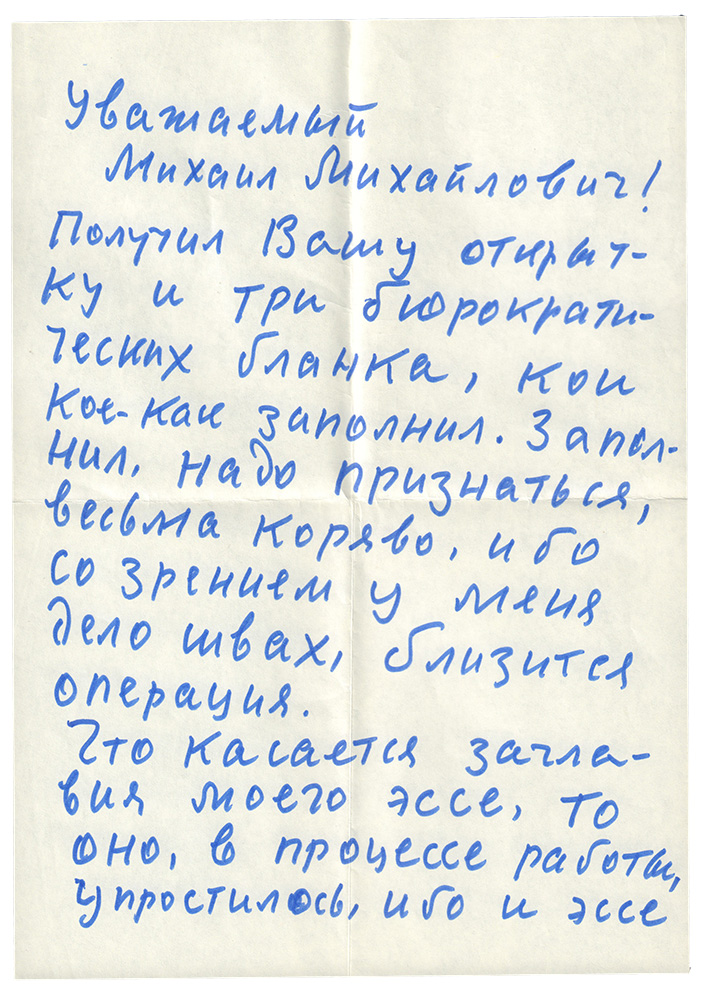 Уважаемый
Михаил Михайлович!
Получил Вашу открыт-
ку и три бюрократи-
ческих бланка, кои
кое-как заполнил. Запол-
нил, надо признаться,
весьма коряво, ибо
со зрением у меня
дело швах, близится
операция.
Что касается загла-
вия моего эссе, то
оно, в процессе работы,
упростилось, ибо и эссе